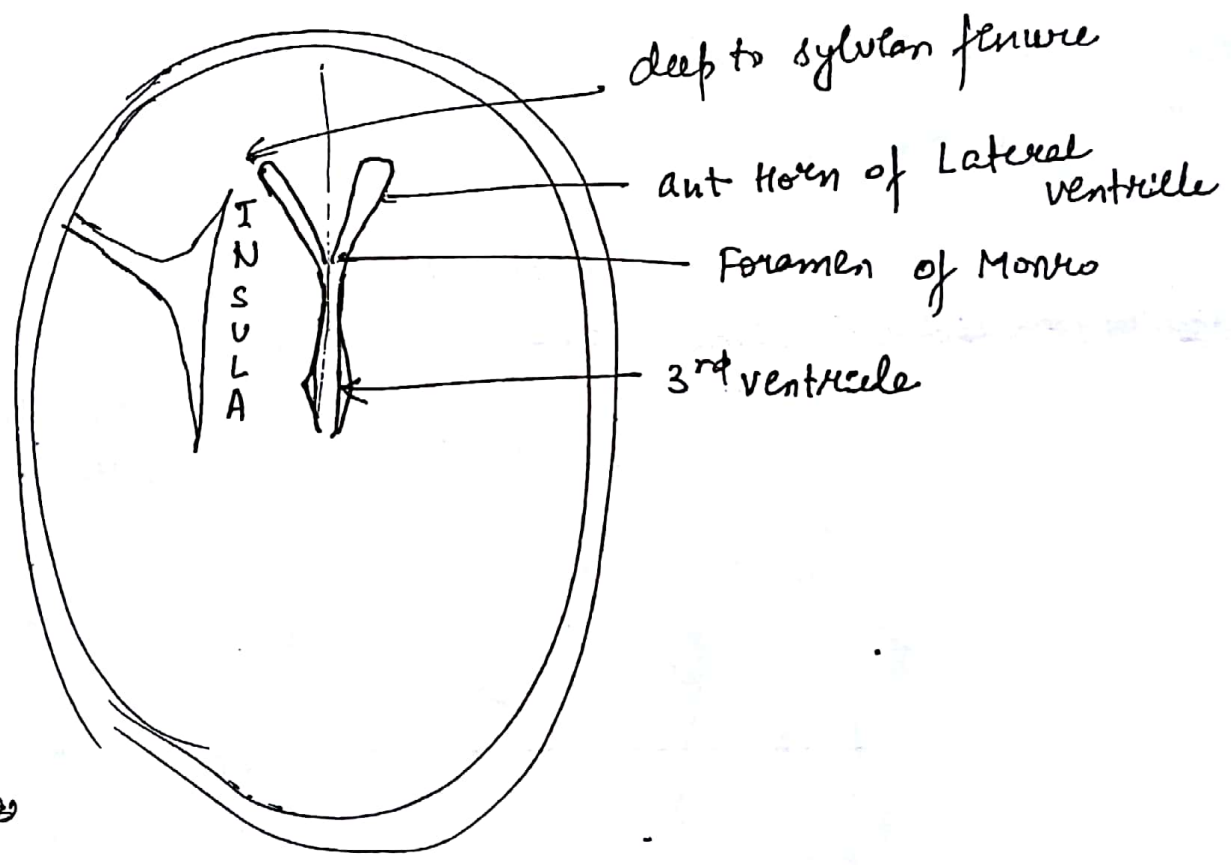 deep to sylvian fissure
ant Horn of Lateral
ventricle
Foramen of Monro
3rd ventricle
INSULA